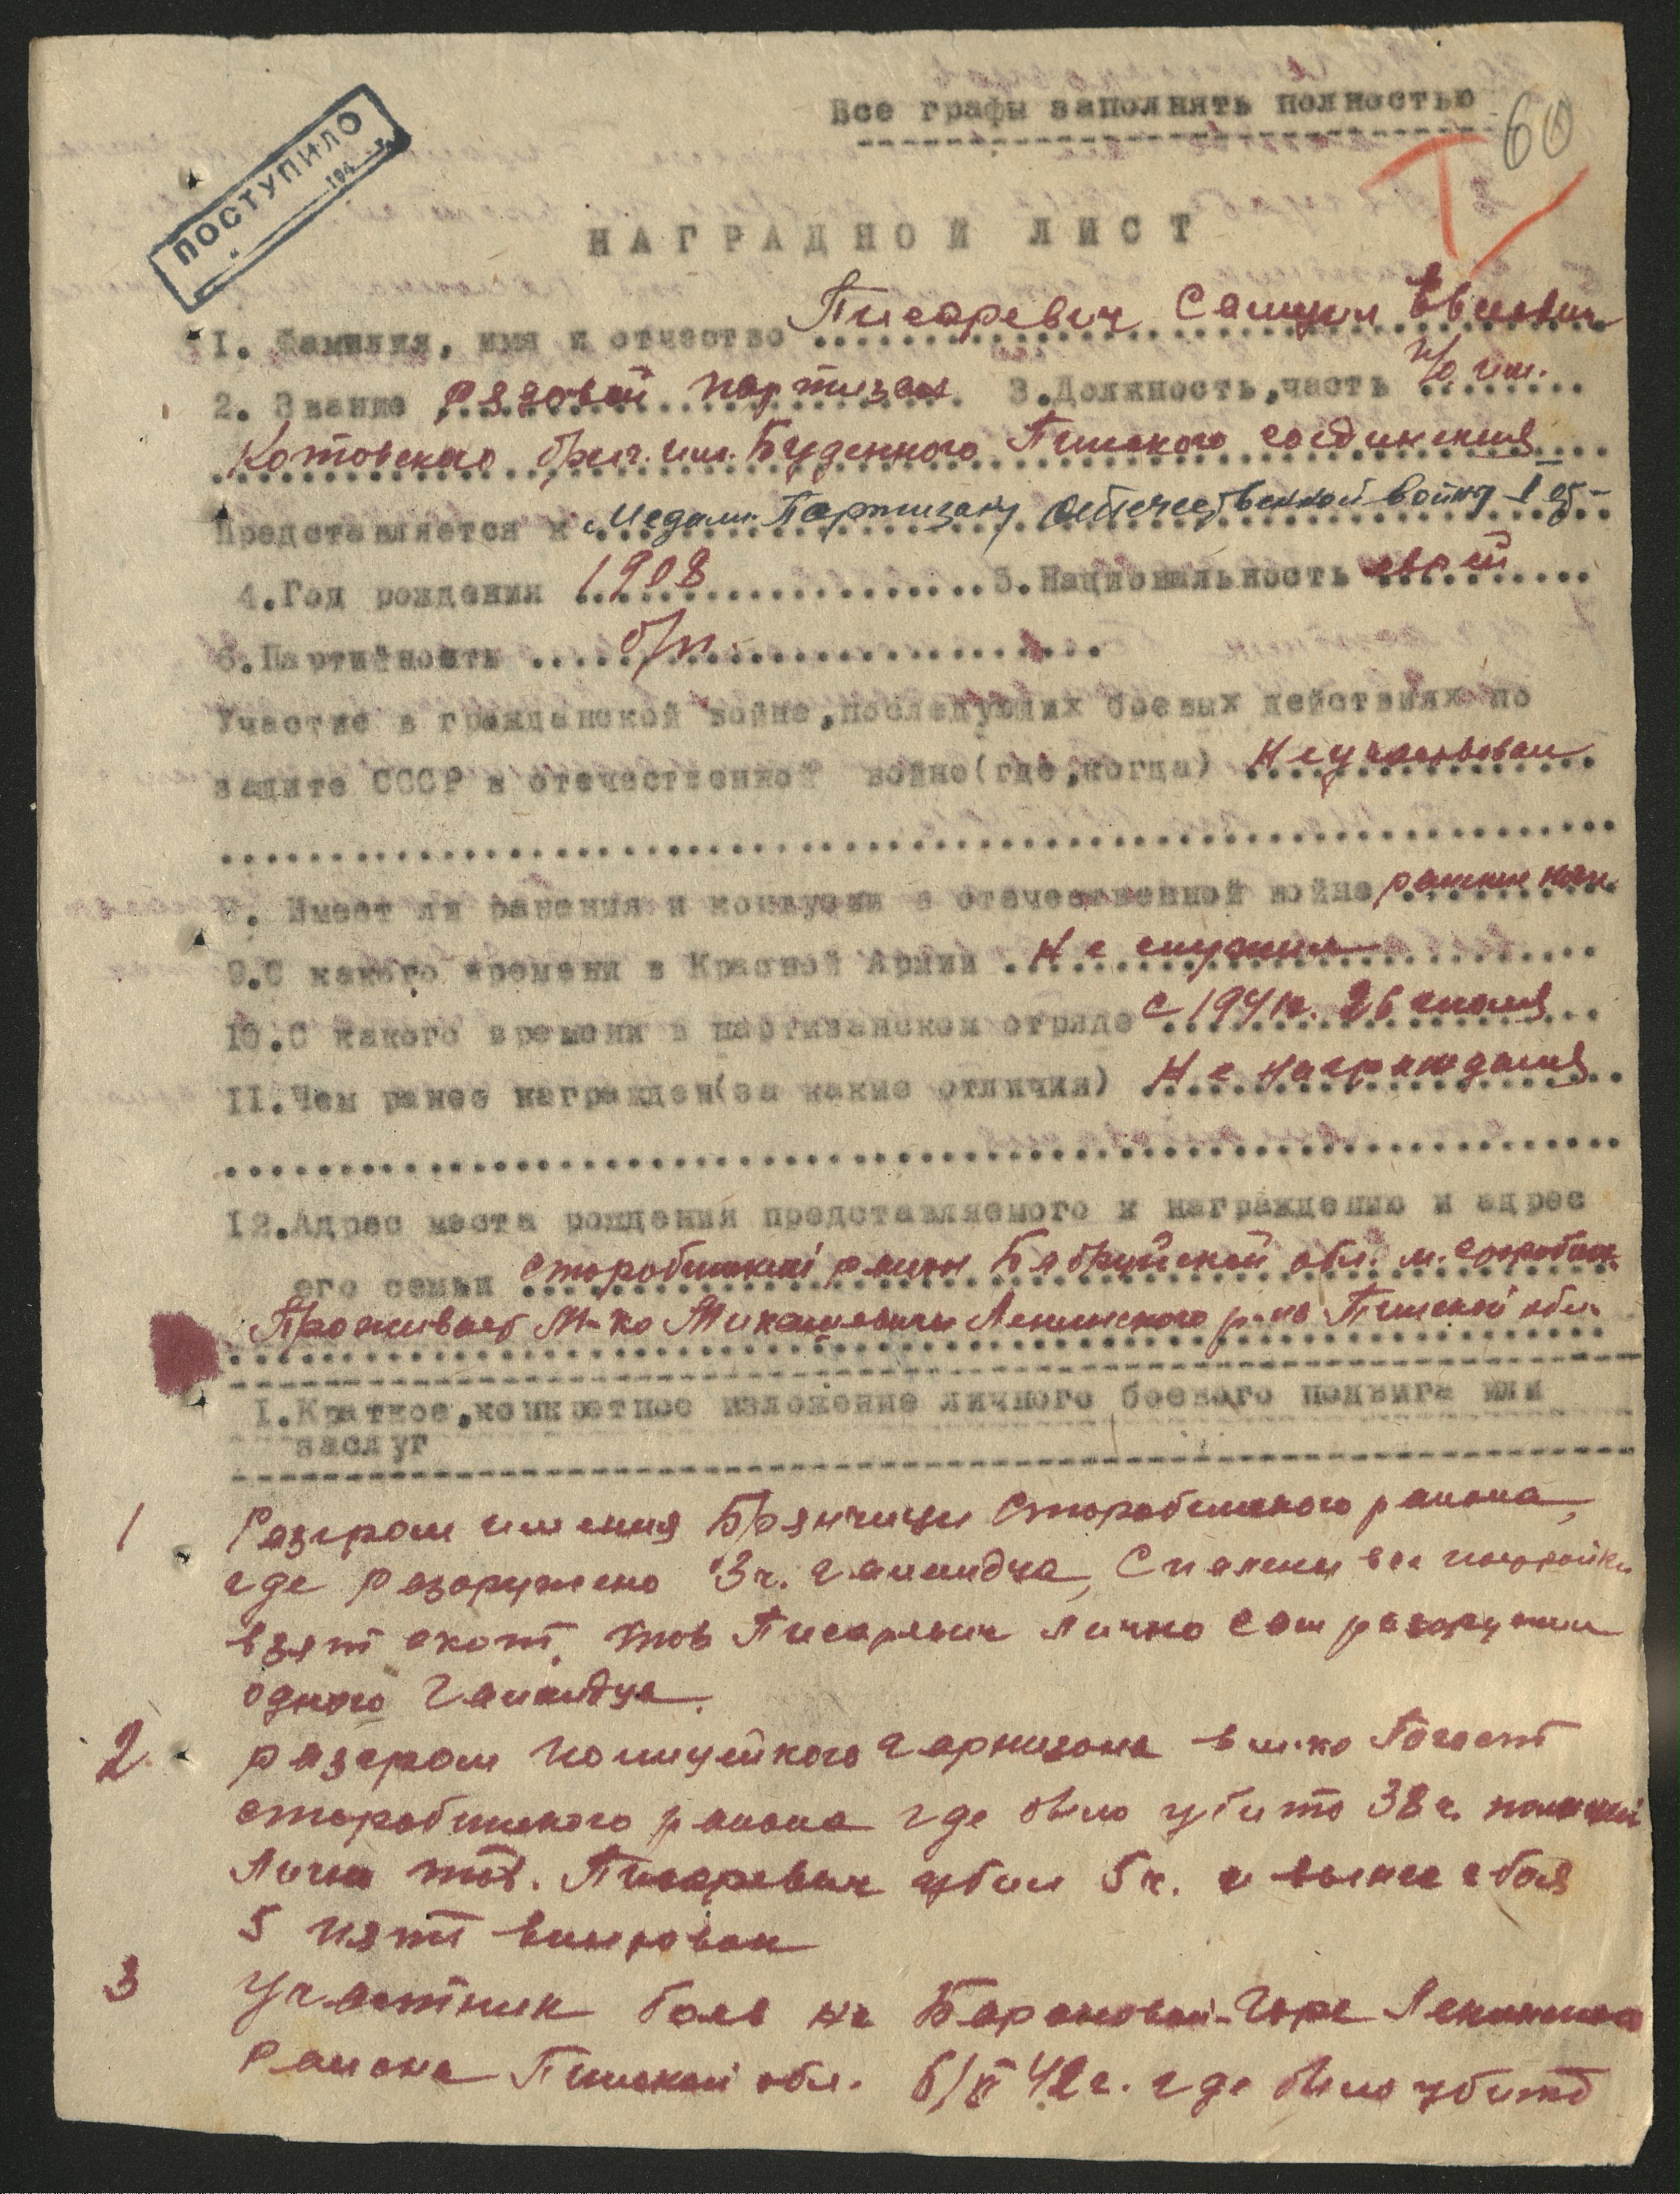 Все графы заполнять полностью
60
ПОСТУПИЛО
194 г.
НАГРАДНОЙ ЛИСТ
I. Фамилия, имя и отчество Писаревич Самуил
2. Звание рядовой партизан 3.Должность,часть п/о им.
Котовского бриг. им. Буденного Пинского соединения
Представляется к Медали Партизану Отечественной войны I ст
4.Год рождения 1908 5.Национальность еврей
6.Партийность б/п.
Участие в гражданской войне,последующих боевых действиях по
защите СССР в отечественной войне(где,когда) Не участвовал
8. Имеет ли ранения и контузии в отечественной войне
9.С какого времени в Красной Армии Не служил
10.С какого времени в партизанском отряде с 1941г. 26 июля
II.Чем ранее награжден(за какие отличия) Не награждался
12.Адрес места рождения представляемого к награждению и адрес
его семьи Старобинский район Бобруйской обл. м. Старобин.
Проживает М-ко Микашевичи Ленинского р-на Пинской обл.
I.Краткое,конкретное изложение личного боевого подвига или
заслуг
1 Разгром имения Брянчицы Старобинского района,
где разоружено 3 ч. , Спалены все постройки
взят скот. тов Писаревич лично сам разоружил
одного
2. разгром полицейкого гарнизона в м-ко Погост
старобинского района где было убито 38 ч. полиции
Лично тов. Писаревич убил 5 ч. и вынес с боя
5 пять винтовок
3 Участник боев на Барановой-Горе Ленинского
Района Пинской обл. 42 г. где было убито